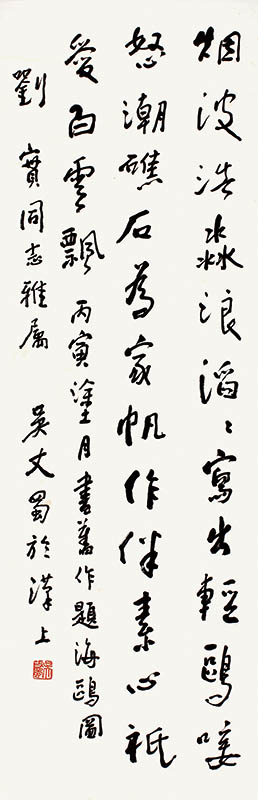 烟波浩淼浪滔〻寫出輕鷗唼
怒潮礁石為家帆作伴素心祇
愛白雲飄 丙寅塗月書舊作題海鷗圖
劉實同志雅屬 吳丈蜀於漢上